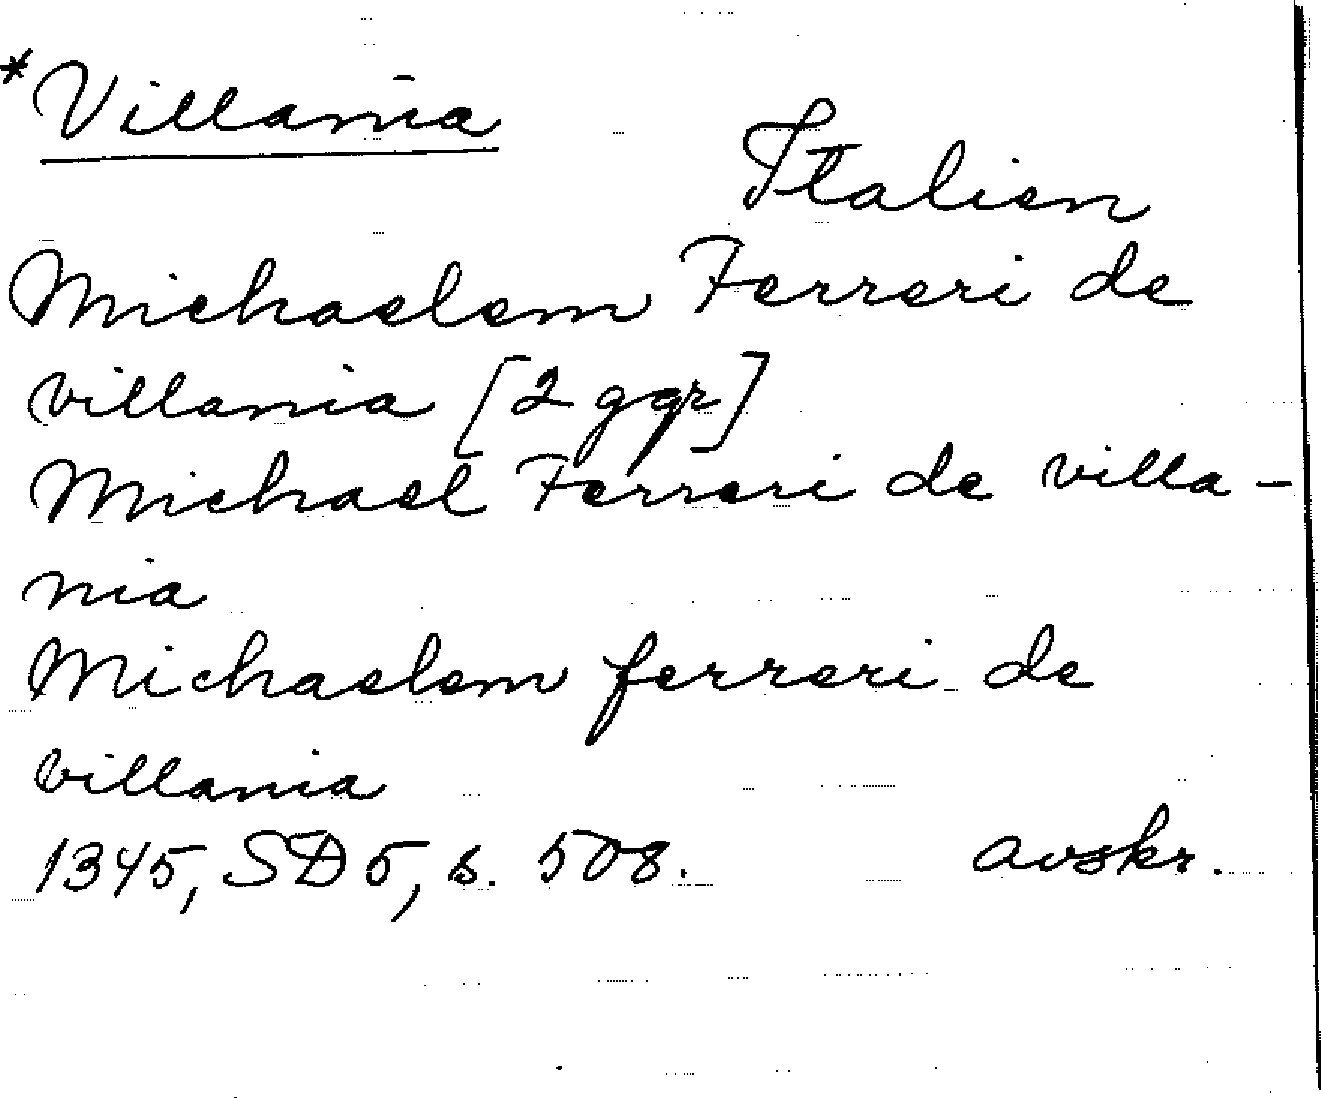 *Villania
Italien
Michaelem Ferreri de
villania [2 ggr]
Michael Ferreri de villa-
nia
Michaelem ferreri de
villania
1345, SD 5, s. 508. avskr.